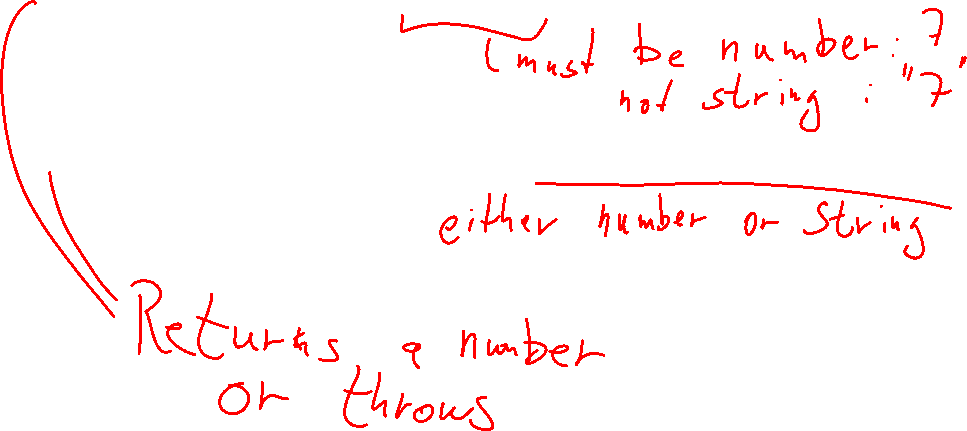 must be number: 7
not string : "7"
either number or string
Returns a number
or throws